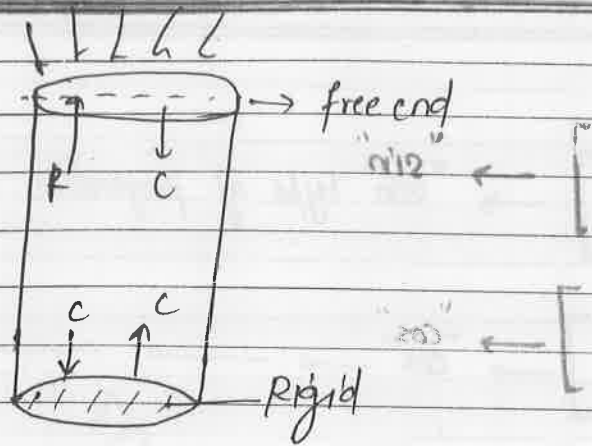 free end
R
C
C
C
Rigid